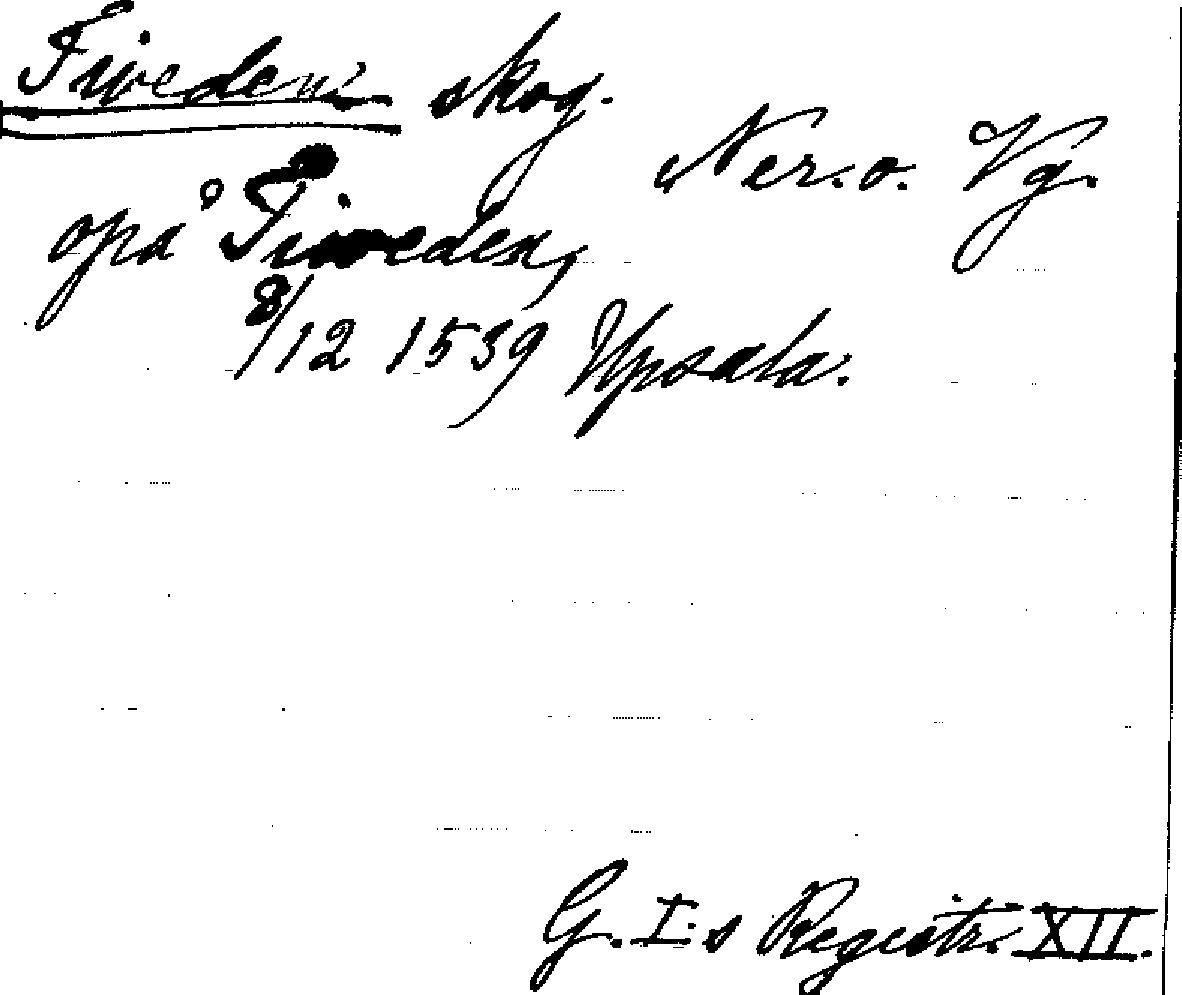 Tiveden skog.
Ner. o. Vg.
opå Tiweden,
8/12 1539 Upsala.
G. I:s Registr. XII.